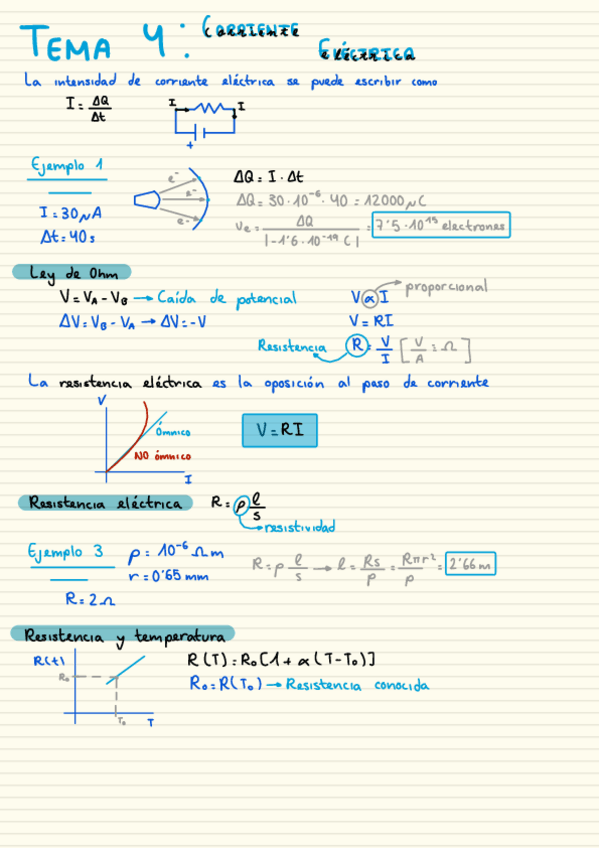 TEMA 4: CORRIENTE ELÉCTRICA
La intensidad de corriente eléctrica se puede escribir como
I = ΔQ/Δt
I I
+
Ejemplo 1
I = 30 μA
Δt = 40 s
e⁻ e⁻ e⁻
ΔQ = I · Δt
ΔQ = 30 · 10⁻⁶ · 40 = 12000 μC
νe = ΔQ/|-1'6 · 10⁻¹⁹ C| = 7'5 · 10¹⁵ electrones
Ley de Ohm
V = VA - VB → Caída de potencial
ΔV = VB - VA → ΔV = -V
V α I proporcional
V = RI
Resistencia R = V/I [V/A = Ω]
La resistencia eléctrica es la oposición al paso de corriente
V
Óhmico
NO óhmico
I
V = RI
Resistencia eléctrica R = ρ l/s
resistividad
Ejemplo 3
ρ = 10⁻⁶ Ω m
r = 0'65 mm
R = 2 Ω
R = ρ l/s → l = Rs/ρ = Rπr²/ρ = 2'66 m
Resistencia y temperatura
R(t)
R₀
T₀ T
R(T) = R₀[1 + α(T-T₀)]
R₀ = R(T₀) → Resistencia conocida